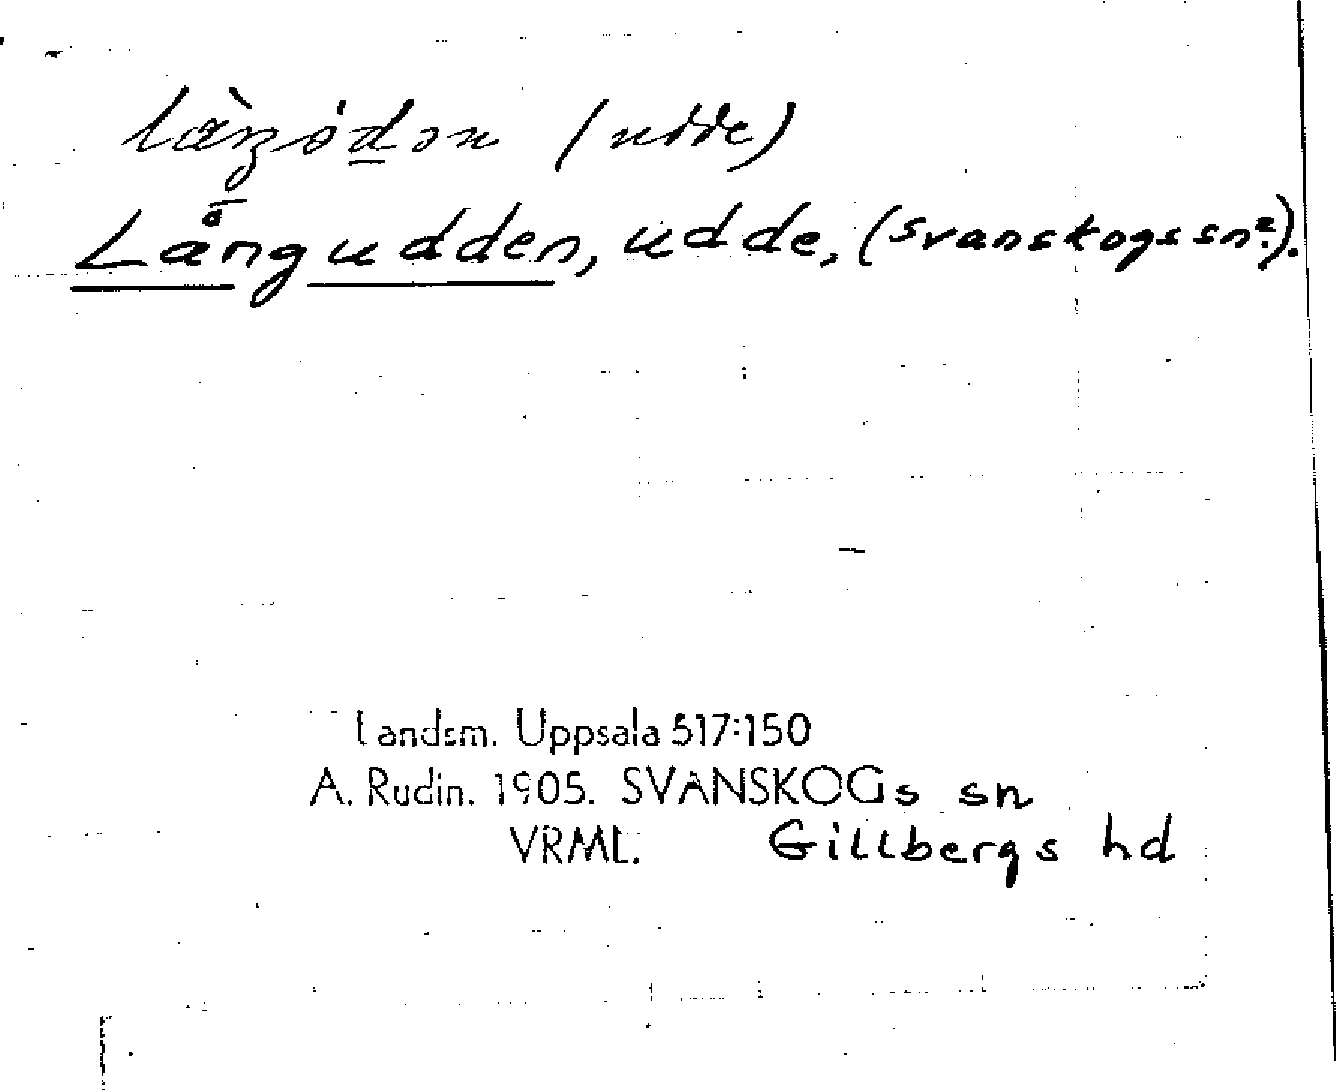 (udde)
Långudden, udde, (Svanskogs sn?).
Landsm. Uppsala 517:150
A. Rudin. 1905. SVANSKOGs sn
VRML. Gillbergs hd